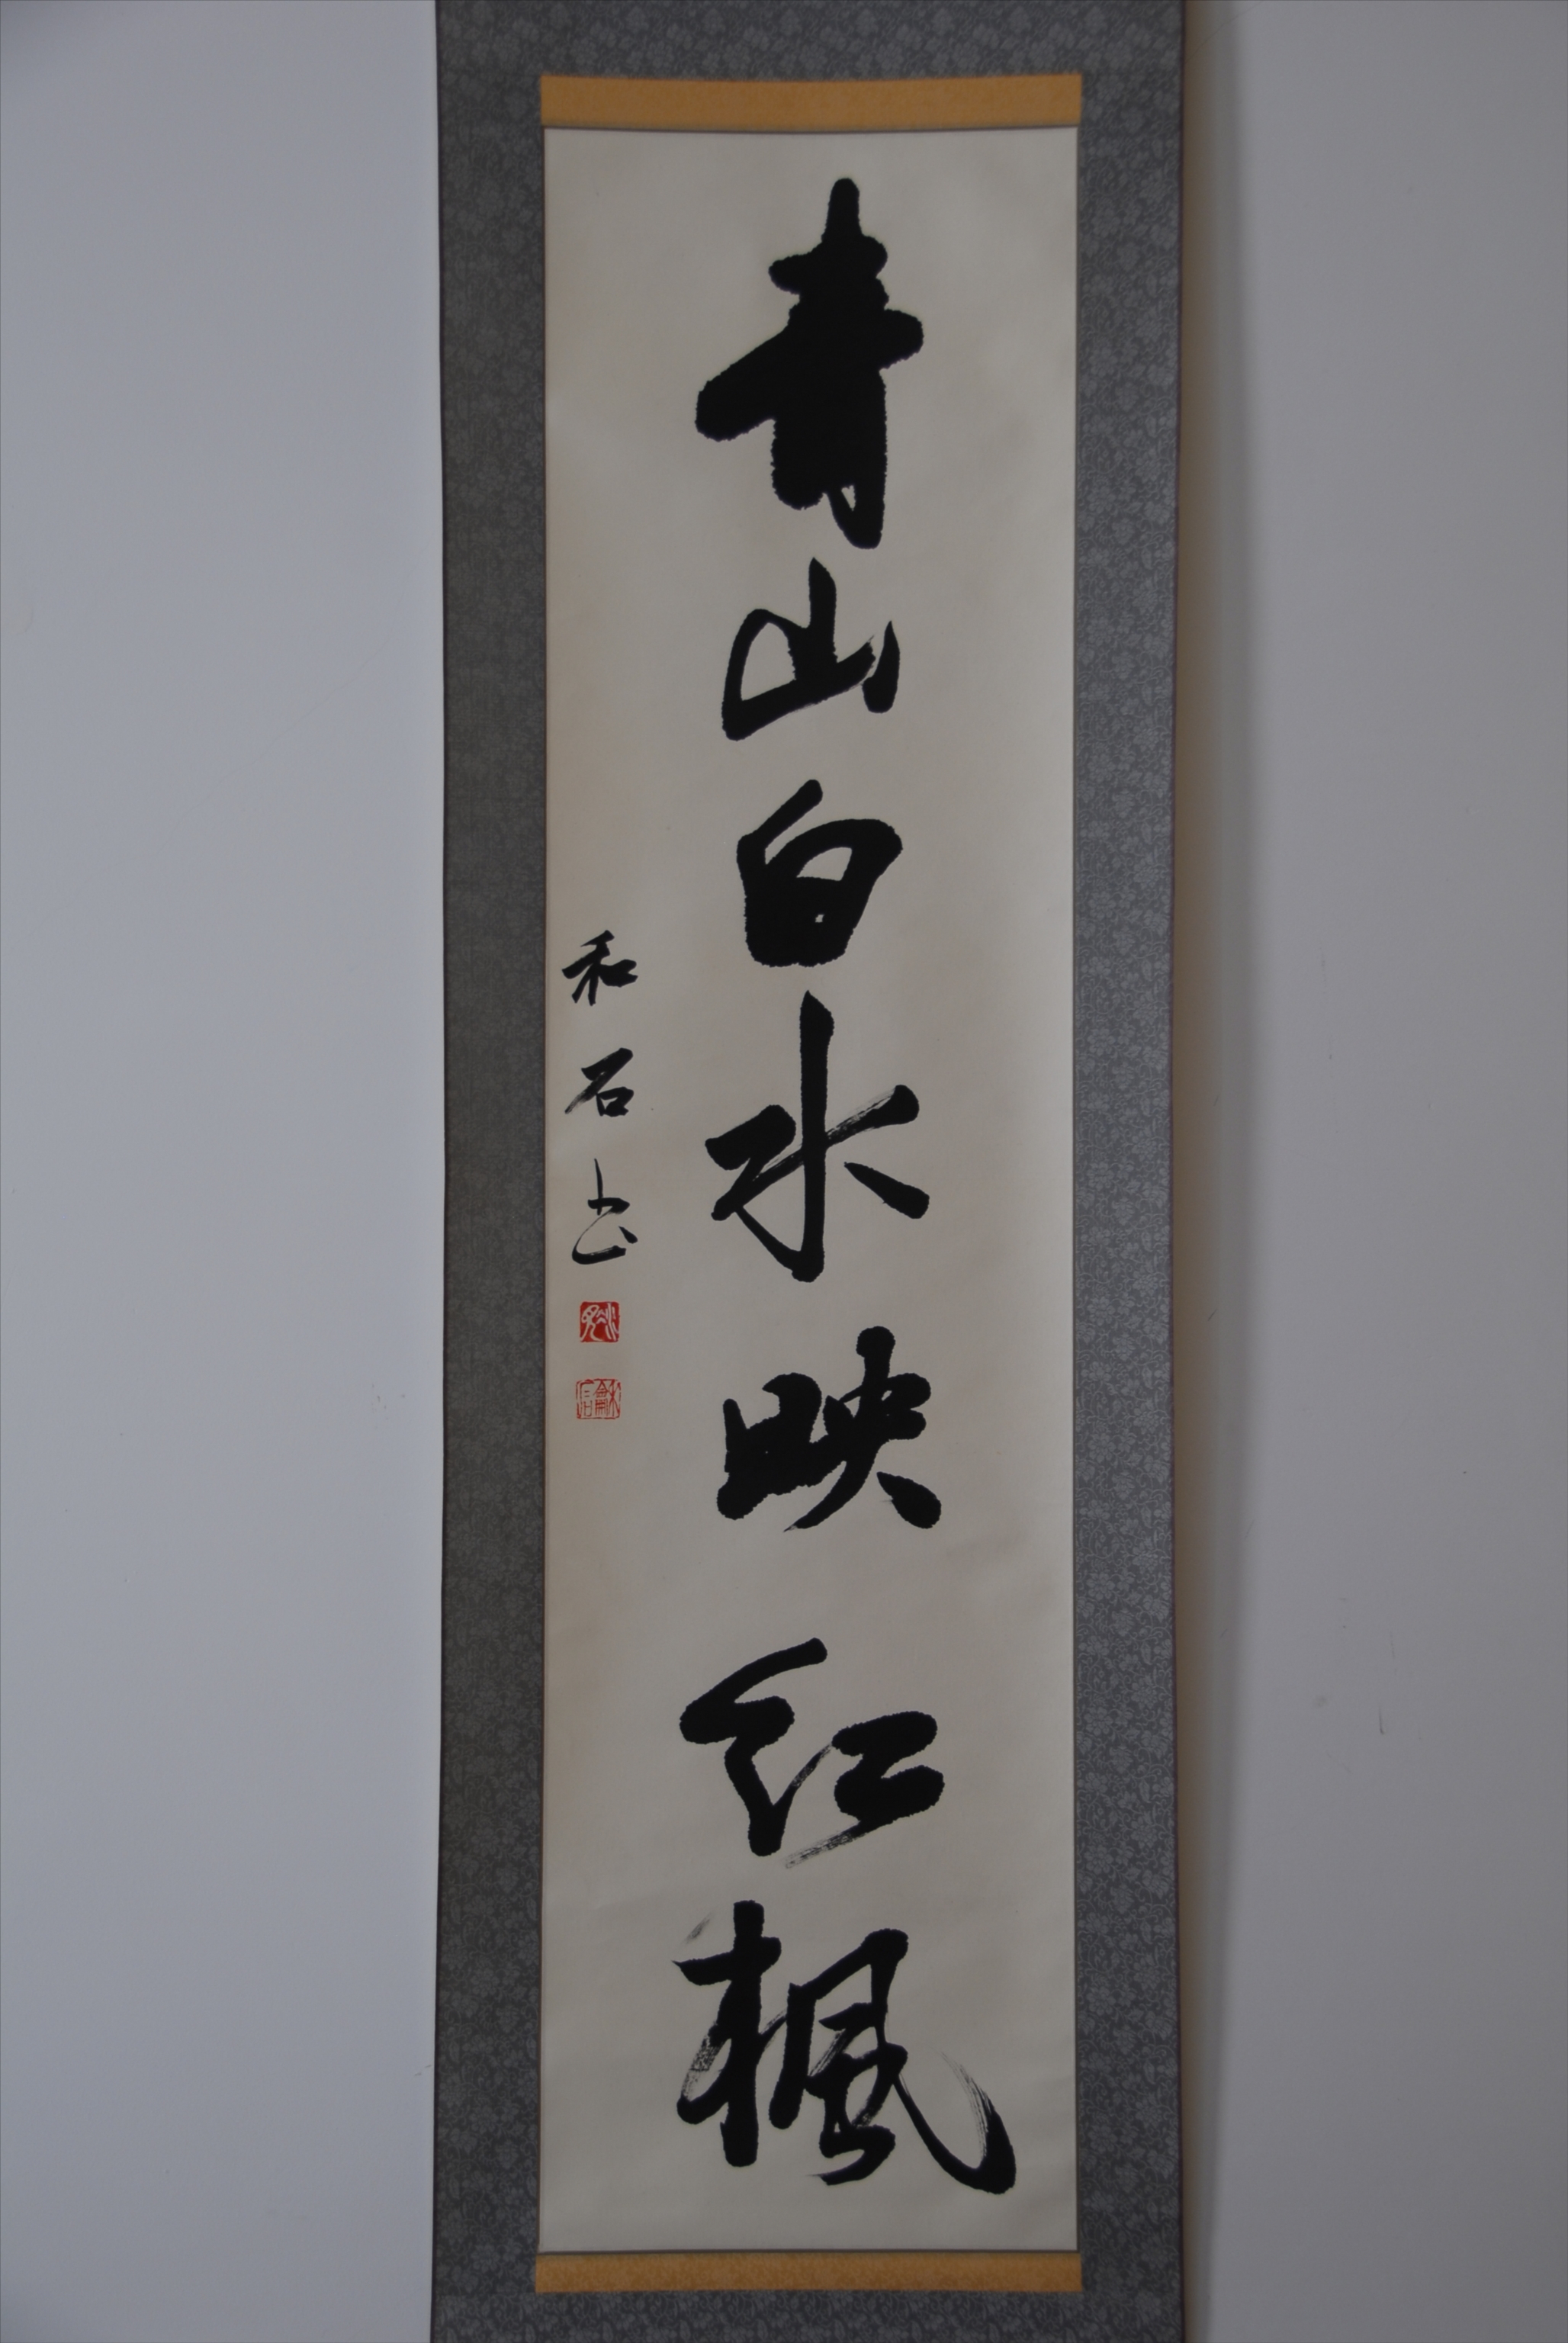 青山白水映红楓
和石书